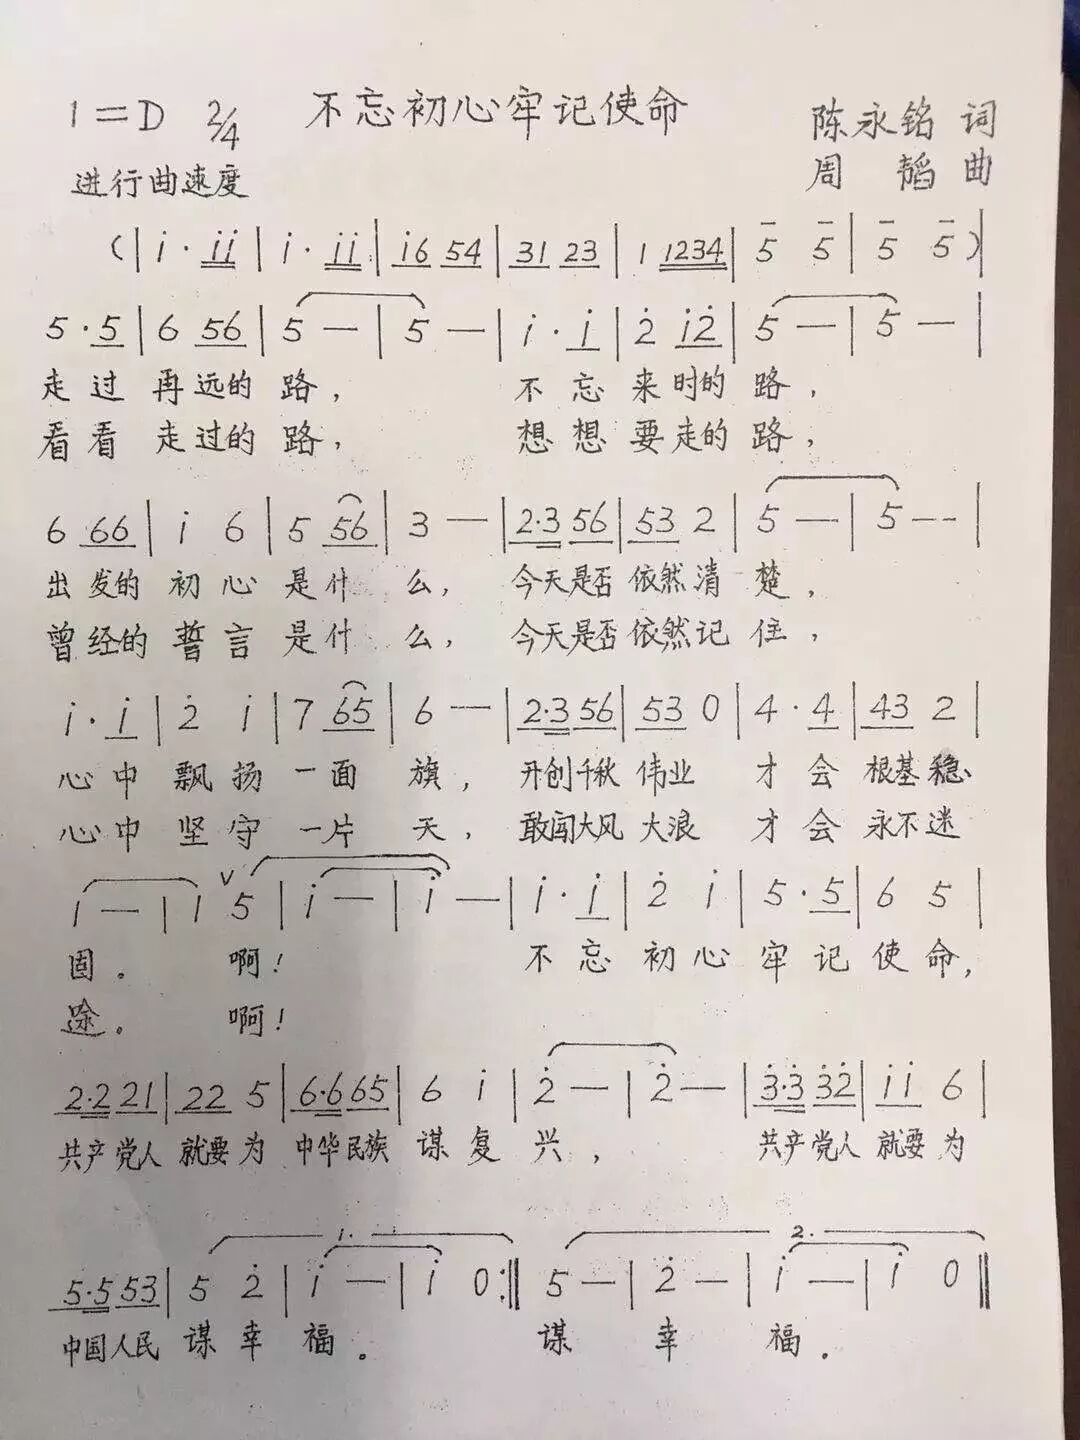 1=D 2/4 不忘初心牢记使命 陈永铭 词
进行曲速度 周 韬 曲
(| i · i i | i · i i | i 6 5 4 | 3 1 2 3 | 1 1 2 3 4 | 5 5 | 5 5 )|
5 · 5 | 6 5 6 | 5 — | 5 — | i · i | 2̇ i 2̇ | 5 — | 5 — |
走过再远的路, 不忘来时的路,
看看走过的路, 想想要走的路,
6 6 6 | i 6 | 5 5 6 | 3 — | 2·3 5 6 | 5 3 2 | 5 — | 5 -- |
出发的初心是什么, 今天是否依然清楚,
曾经的誓言是什么, 今天是否依然记住,
i · i | 2̇ i | 7 6 5 | 6 — | 2·3 5 6 | 5 3 0 | 4 · 4 | 4 3 2 |
心中飘扬一面旗, 开创千秋伟业 才会根基稳
心中坚守一片天, 敢闯大风大浪 才会永不迷
1 — | 1 ∨ 5 | i — | i — | i · i | 2̇ i | 5 · 5 | 6 5 |
固。 啊! 不忘初心牢记使命,
途。 啊!
2·2 2 1 | 2 2 5 | 6·6 6 5 | 6 i | 2̇ — | 2̇ — | 3̇·3̇ 3̇ 2̇ | i i 6 |
共产党人就要为中华民族谋复兴, 共产党人就要为
1. 2.
5·5 5 3 | 5 2̇ | i — | i 0 :‖ 5 — | 2̇ — | i — | i 0 ‖
中国人民谋幸福。 谋幸福。